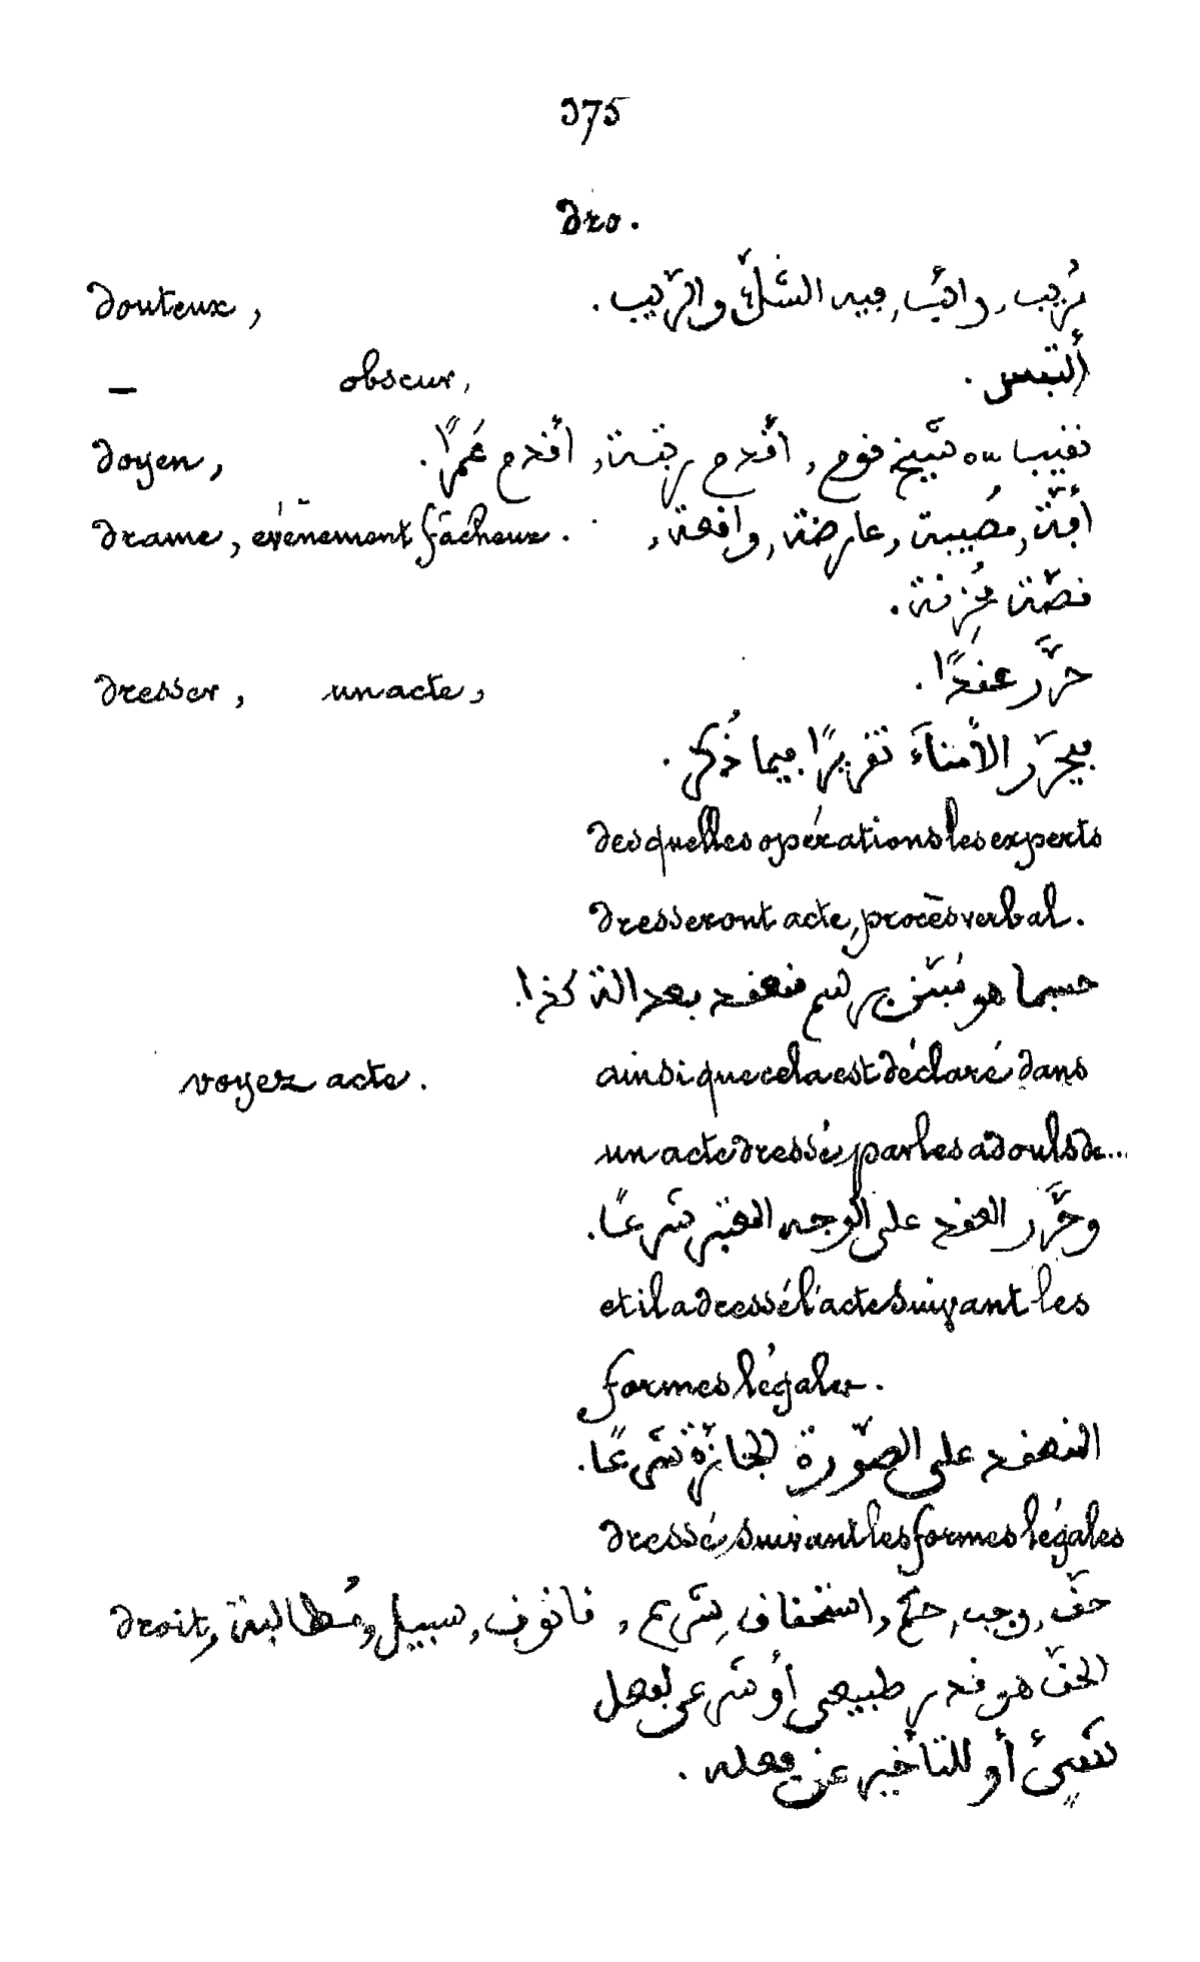 375
dro.
douteux, مُريب, رائب, فيه الشكّ والرّيب.
— obscur, ألتبس.
doyen, نقيب ou شيخ قوم, أقدم رتبة, أقدم عُمرًا.
drame, événement fâcheux. مُصيبة, عارضة, واقعة,
قصّة مُحزنة.
dresser, un acte, حرَّر عقدًا.
يحرّر الأمناءَ تقريرًا فيما ذُكر.
desquelles opérations les experts
dresseront acte, procès verbal.
حسبما هو برسم منعقد بعدالة كذا.
voyez acte. ainsi que cela est déclaré dans
un acte dressé par les adouls de...
وحَرَّر العقد على الوجه المعتبر شرعًا.
et il a dressé l'acte suivant les
formes légales.
المنعقد على الصّورة الجائزة شرعًا.
dressé suivant les formes légales
droit, حقّ, وجب, حكم, استحقاق, قانون, سبيل, مُطالبة,
الحقّ هو قدر طبيعي أو شرعي لفعل
شيءٍ أو للتأخير عن فعله.